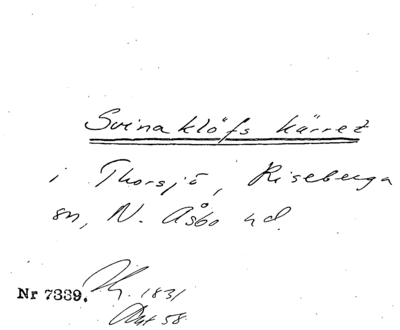 Svinaklöfs kärret
i Thorsjö, Riseberga
sn, N. Åsbo hd.
Nr 7339. 1831
58